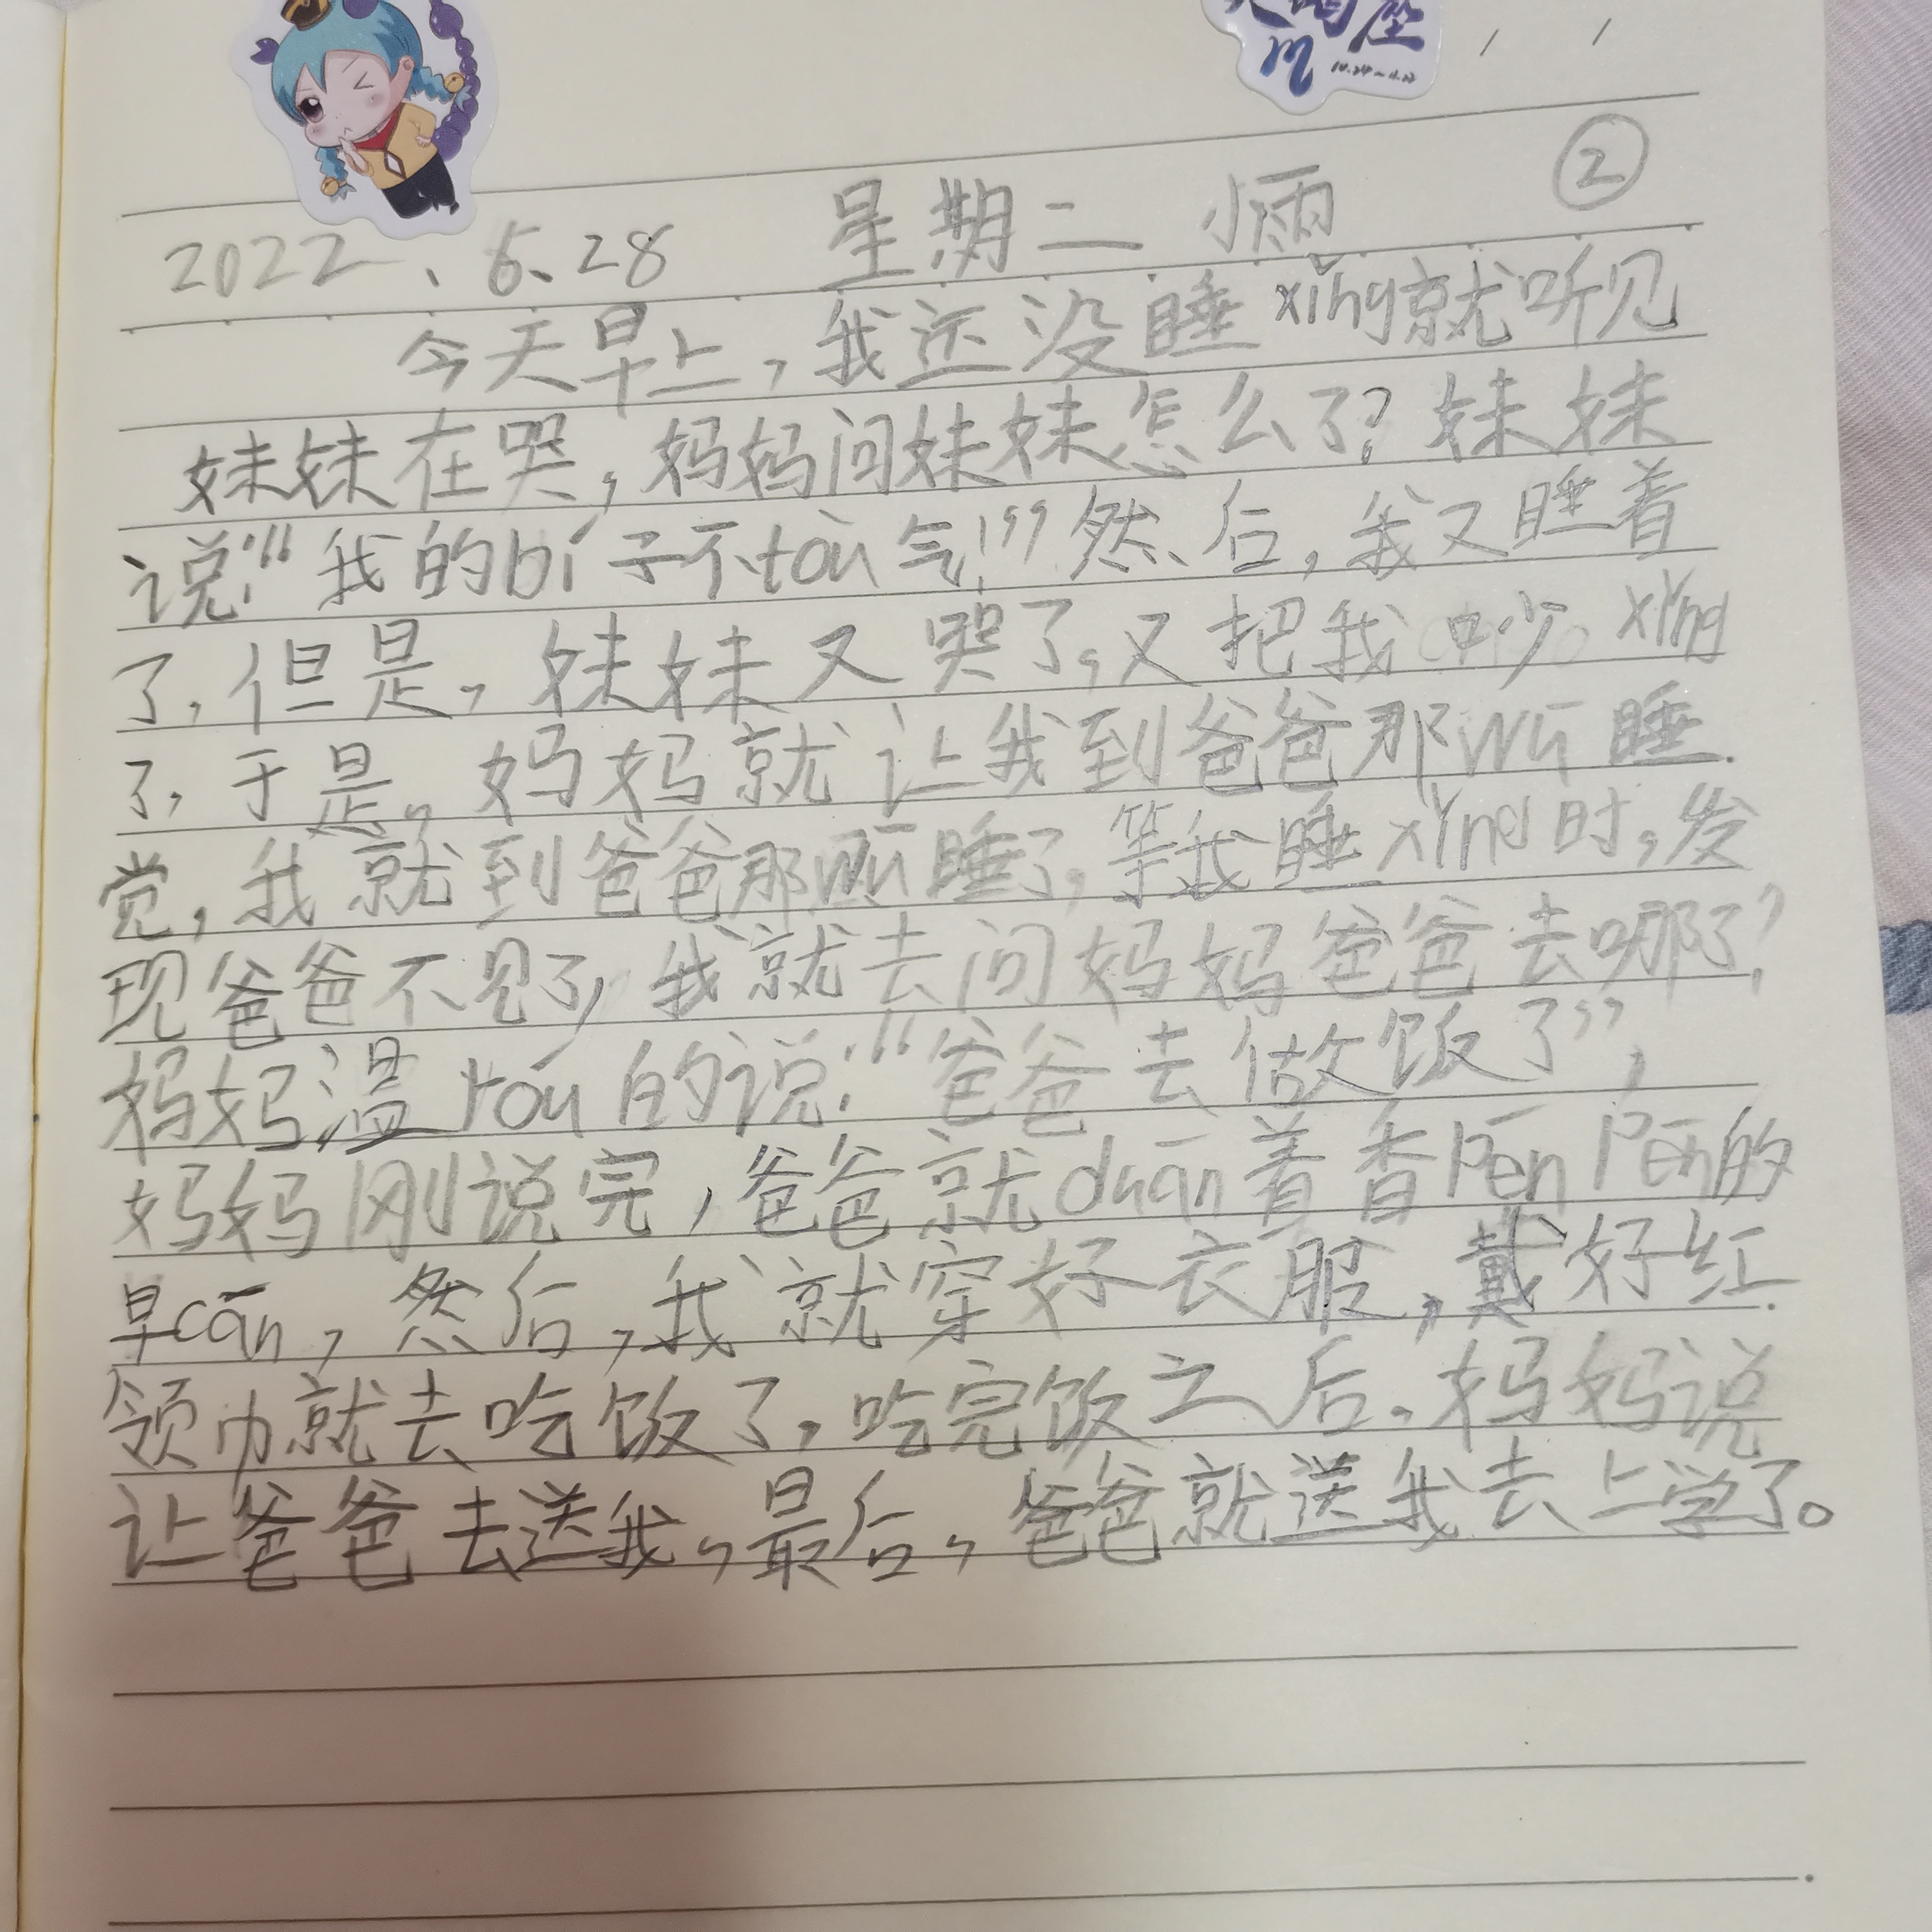 天蝎座
10.24~11.22
②
2022、6、28 星期二 小雨
今天早上，我还没睡xǐng就听见
妹妹在哭，妈妈问妹妹怎么了？妹妹
说：“我的bí子不tòu气！”然后，我又睡着
了，但是，妹妹又哭了，又把我吵xǐng
了，于是，妈妈就让我到爸爸那wū睡
觉，我就到爸爸那wū睡了，等我睡xǐng时，发
现爸爸不见了，我就去问妈妈爸爸去哪了？
妈妈温róu的说：“爸爸去做饭了”，
妈妈刚说完，爸爸就duān着香Pēn Pēn的
早cān，然后，我就穿好衣服，戴好红
领巾就去吃饭了，吃完饭之后，妈妈说
让爸爸去送我，最后，爸爸就送我去上学了。